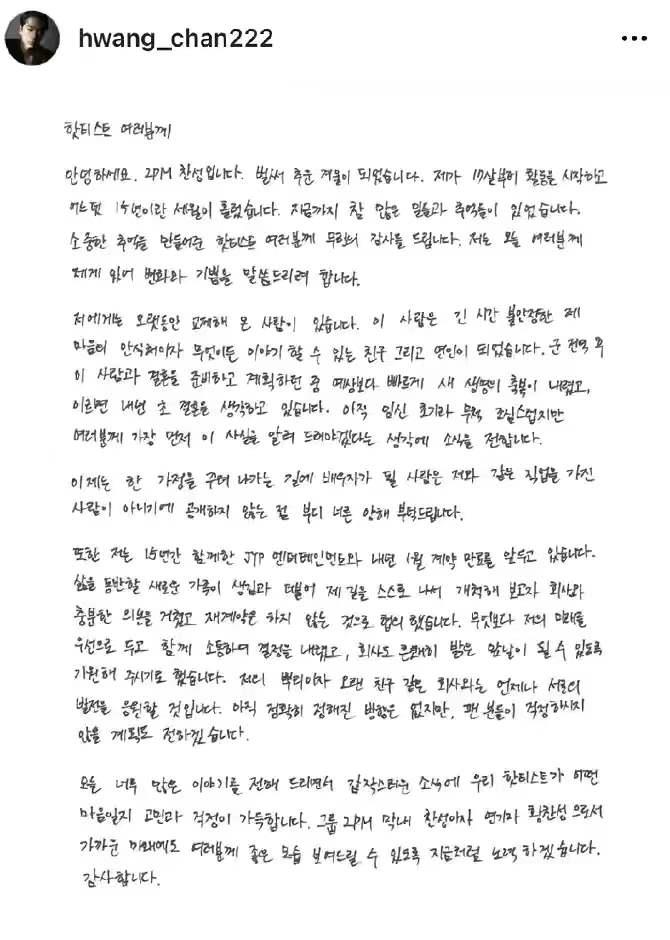 hwang_chan222
핫티스트 여러분께
안녕하세요. 2PM 찬성입니다. 벌써 추운 겨울이 되었습니다. 제가 17살부터 활동을 시작하고
어느덧 15년이란 세월이 흘렀습니다. 지금까지 참 많은 일들과 추억들이 있었습니다.
소중한 추억을 만들어준 핫티스트 여러분께 무한의 감사를 드립니다. 저는 오늘 여러분께
제게 있어 변화와 기쁨을 말씀드리려 합니다.
저에게는 오랫동안 교제해 온 사람이 있습니다. 이 사람은 긴 시간 불안정한 제
마음의 안식처이자 무엇이든 이야기 할 수 있는 친구 그리고 연인이 되었습니다. 군 전역 후
이 사람과 결혼을 준비하고 계획하던 중 예상보다 빠르게 새 생명의 축복이 내렸고,
이르면 내년 초 결혼을 생각하고 있습니다. 아직 임신 초기라 무척 조심스럽지만
여러분께 가장 먼저 이 사실을 알려 드려야겠다는 생각에 소식을 전합니다.
이제는 한 가정을 꾸려 나가는 길에 배우자가 될 사람은 저와 같은 직업을 가진
사람이 아니기에 공개하지 않는 점 부디 너른 양해 부탁드립니다.
또한 저는 15년간 함께한 JYP 엔터테인먼트와 내년 1월 계약 만료를 앞두고 있습니다.
삶을 동반할 새로운 가족이 생김과 더불어 제 길을 스스로 나서 개척해 보고자 회사와
충분한 의논을 거쳤고 재계약은 하지 않는 것으로 협의 했습니다. 무엇보다 저의 미래를
우선으로 두고 함께 소통하며 결정을 내렸고, 회사도 흔쾌히 밝은 앞날이 될 수 있도록
기원해 주시기도 했습니다. 저의 뿌리이자 오랜 친구 같은 회사와는 언제나 서로의
발전을 응원할 것입니다. 아직 정확히 정해진 방향은 없지만, 팬 분들이 걱정하시지
않을 계획도 전하겠습니다.
오늘 너무 많은 이야기를 전해 드리면서 갑작스러운 소식에 우리 핫티스트가 어떤
마음일지 고민과 걱정이 가득합니다. 그룹 2PM 막내 찬성이자 연기자 황찬성으로서
가까운 미래에도 여러분께 좋은 모습 보여드릴 수 있도록 지금처럼 노력하겠습니다.
감사합니다.